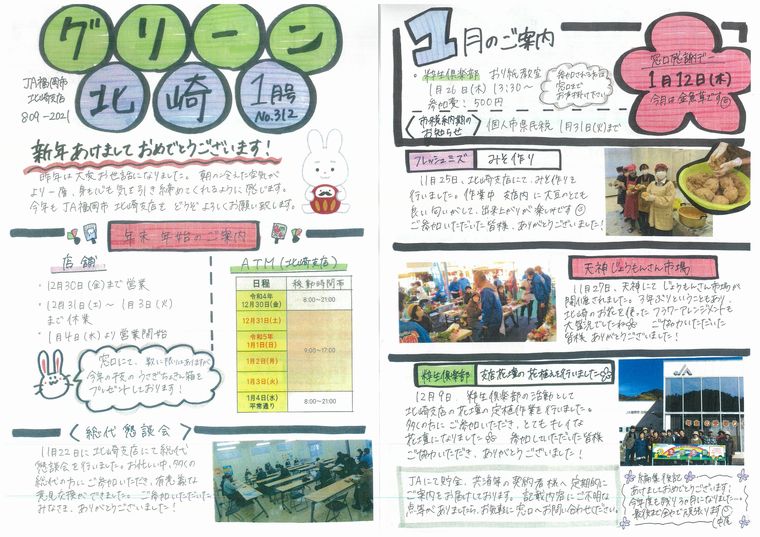 グリーン
北崎
1月号
No.312
JA福岡市
北崎支店
809-2021
新年あけまして おめでとうございます！
昨年は大変お世話になりました。朝の冷えた空気が
より一層、身も心も気を引き締めてくれるように感じます。
今年も JA福岡市 北崎支店を どうぞよろしくお願い致します。
年末年始のご案内
店舗
・12月30日(金)まで営業
・12月31日(土)～ 1月3日(火)
まで休業
・1月4日(水)より営業開始
窓口にて、数に限りはありますが
今年の干支のうさぎちょきん箱を
プレゼントしております！
ATM(北崎支店)
日程 稼動時間帯
令和4年
12月30日(金) 8:00～21:00
12月31日(土)
令和5年
1月1日(日)
9:00～17:00
1月2日(月)
1月3日(火)
1月4日(水)
平常通り 8:00～21:00
総代懇談会
11月22日に北崎支店にて総代
懇談会を行いました。お忙しい中、多くの
総代の方にご参加いただき、有意義な
意見交換ができました。ご参加いただいた
みなさま、ありがとうございました！
1月のご案内
・粋生倶楽部 おり紙教室
1月26日(木) 13:30～
参加費：500円
窓口まで
市税納期の
お知らせ
個人市県民税 1月31日(火)まで
窓口感謝デー
1月12日(木)
今月は金魚草です
フレッシュミズ みそ作り
11月25日、北崎支店にて、みそ作りを
行いました。作業中 支店内に大豆のとても
良い匂いがして、出来上がりが楽しみです
ご参加いただいた皆様、ありがとうございました！
天神じょうもんさん市場
11月27日、天神にて じょうもんさん市場が
開催されました。3年ぶりということもあり、
北崎のお花を使ったフラワーアレンジメントも
大盛況でしたね ご協力いただいた
皆様 ありがとうございました！
粋生倶楽部 支店花壇の花植えを行いました
12月9日、粋生倶楽部の活動として
北崎支店の花壇の定植作業を行いました。
多くの方にご参加いただき、とてもキレイな
花壇になりました 参加していただいた皆様
ご協力いただき、ありがとうございました！
JAにて貯金、共済等の契約者様へ定期的に
ご案内をお届けしております。記載内容にご不明な
点等がありましたら、お気軽に窓口へお問い合わせください。
編集後記
あけましておめでとうございます！
今年度も残り3ヶ月になりました
最後まで全力で頑張ります
JA